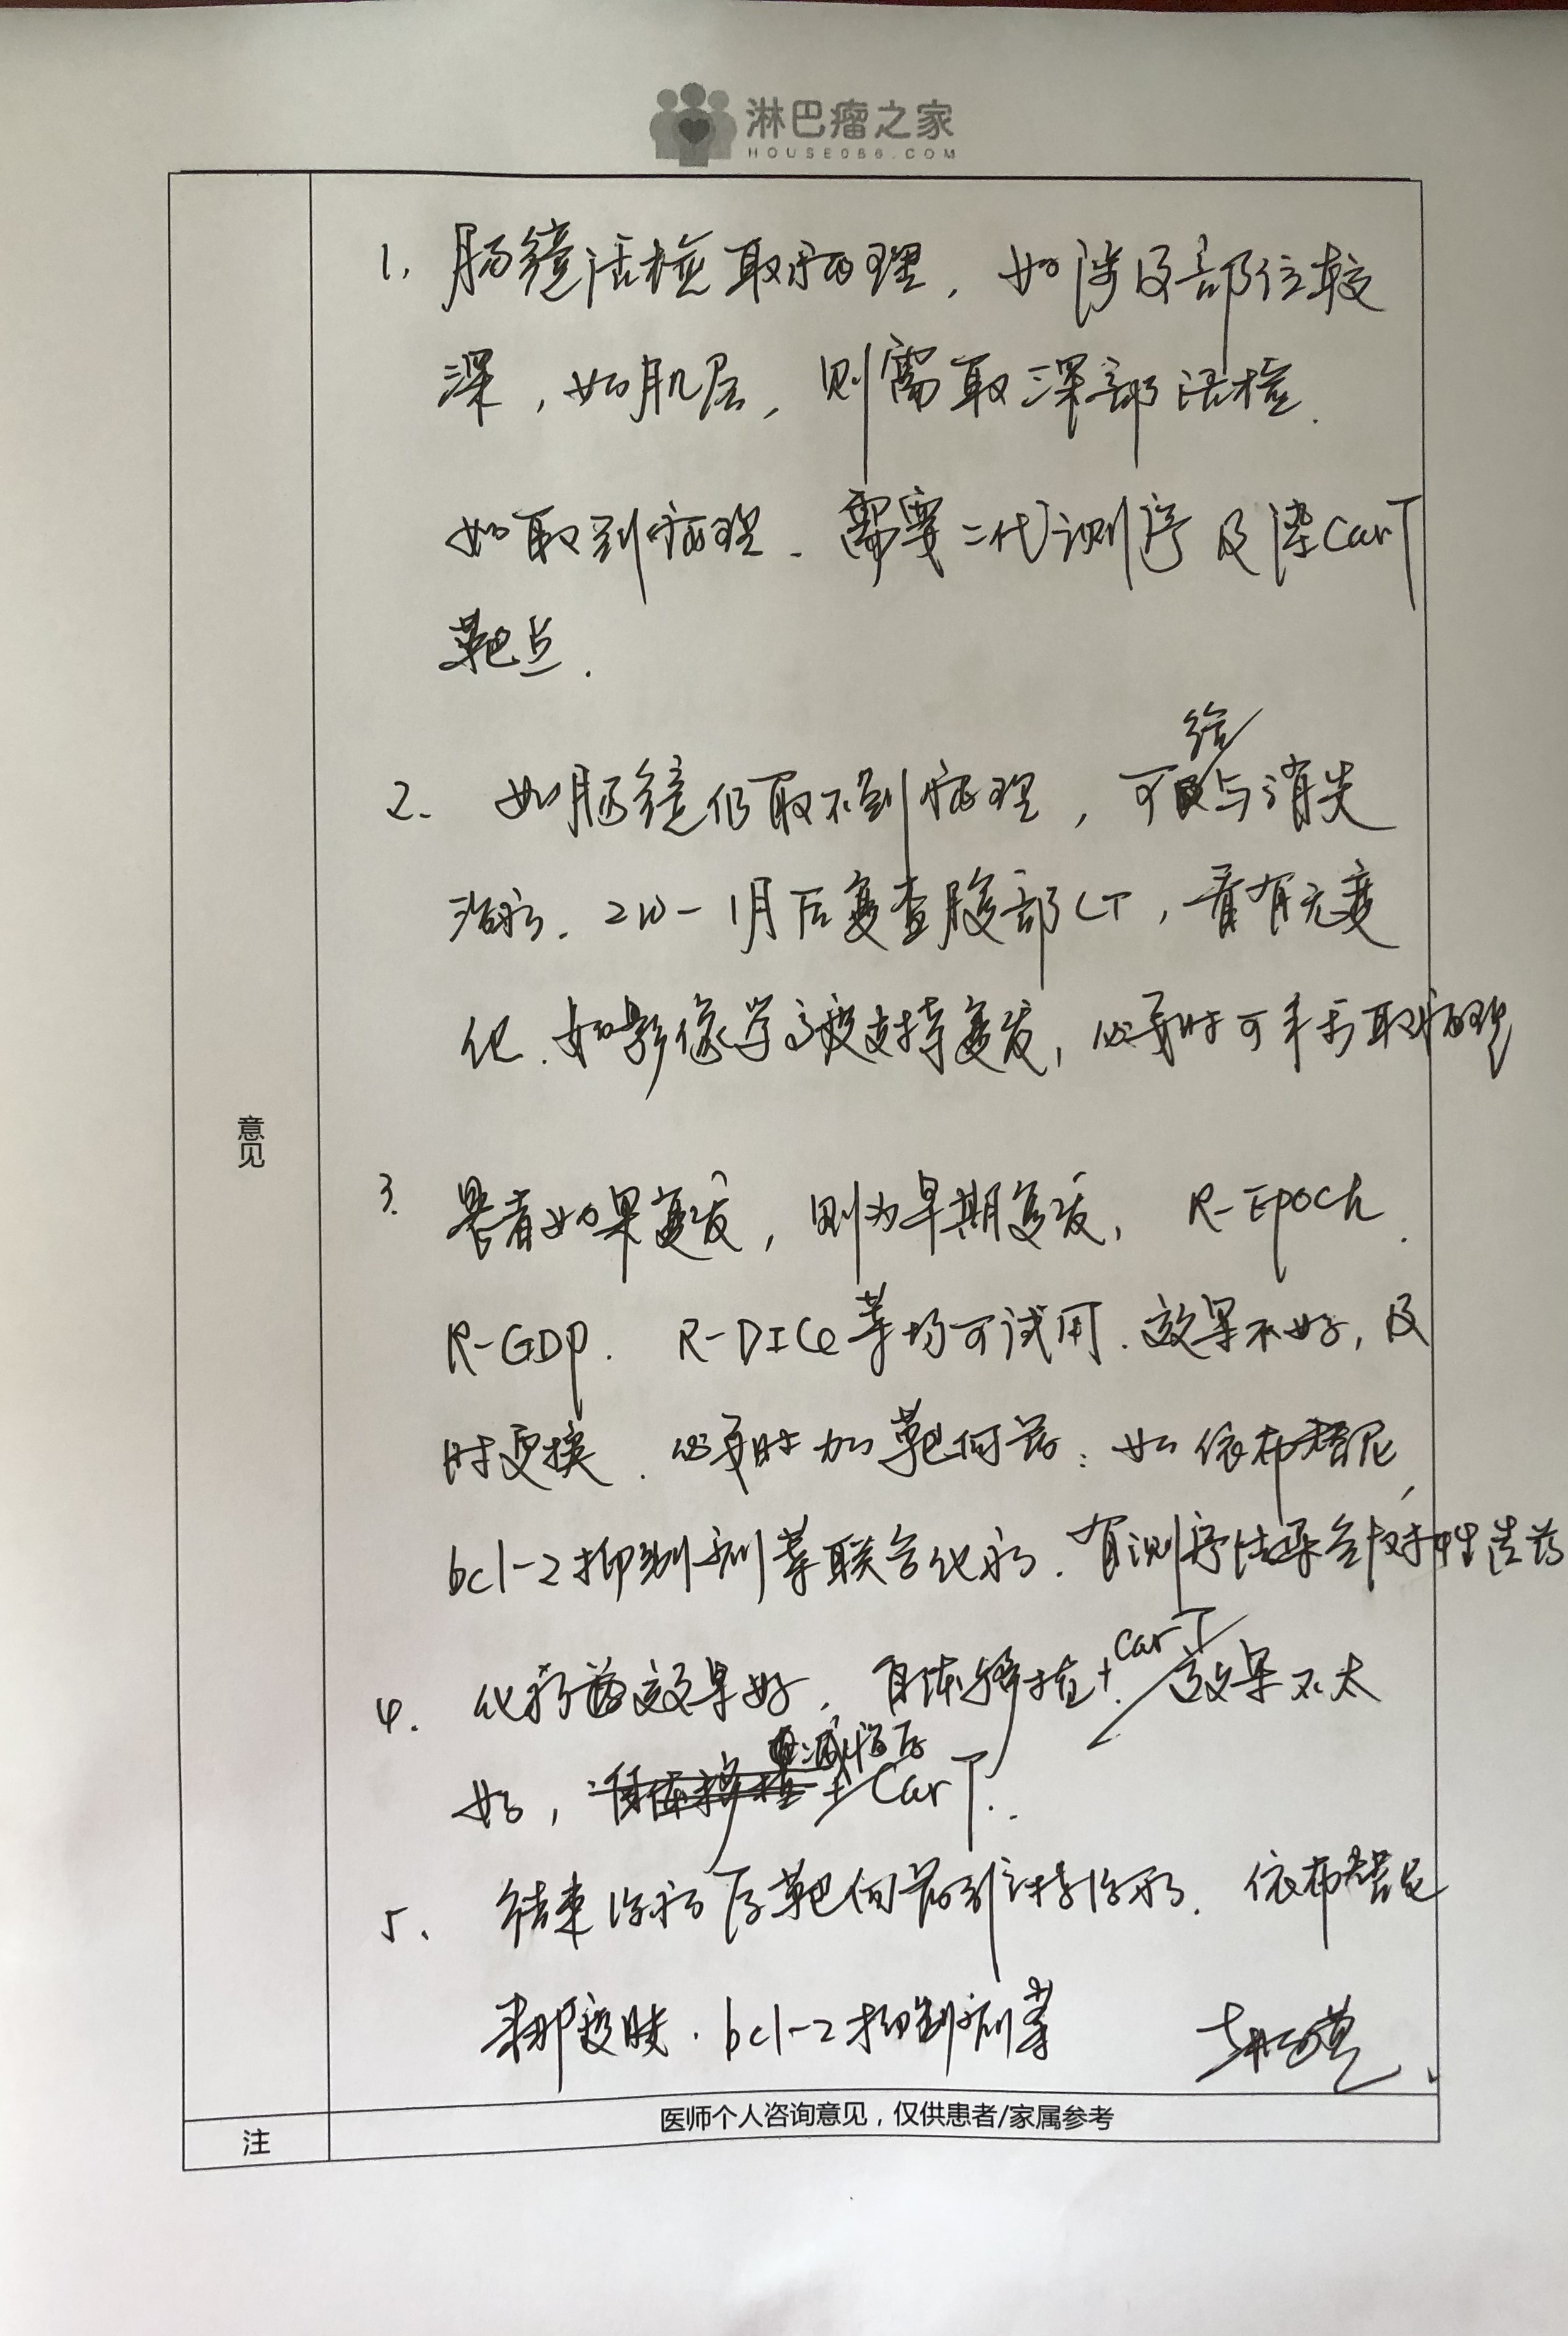 淋巴瘤之家
HOUSE086.COM
意见
1. 肠镜活检取病理，如涉及部位较
深，如肌层，则需取深部活检.
如取到病理、需要二代测序及染CarT
靶点.
给
2. 如肠镜仍取不到病理，可与消炎
治疗. 2W-1月后复查腹部CT，看有无变
化. 如影像学高度支持复发，必要时可手术取病理
3. 患者如果复发，则为早期复发， R-EPOCH.
R-GDP. R-DICE等均可试用. 效果不好，及
时更换. 必要时加靶向药：如依布替尼，
bcl-2抑制剂等联合化疗. 有测序结果针对性选药
CarT
4. 化疗效果好，自体移植+ 效果不太
减瘤后
好， CarT..
5. 结束治疗后靶向药维持治疗. 依布替尼
来那度胺. bcl-2抑制剂等
注
医师个人咨询意见，仅供患者/家属参考